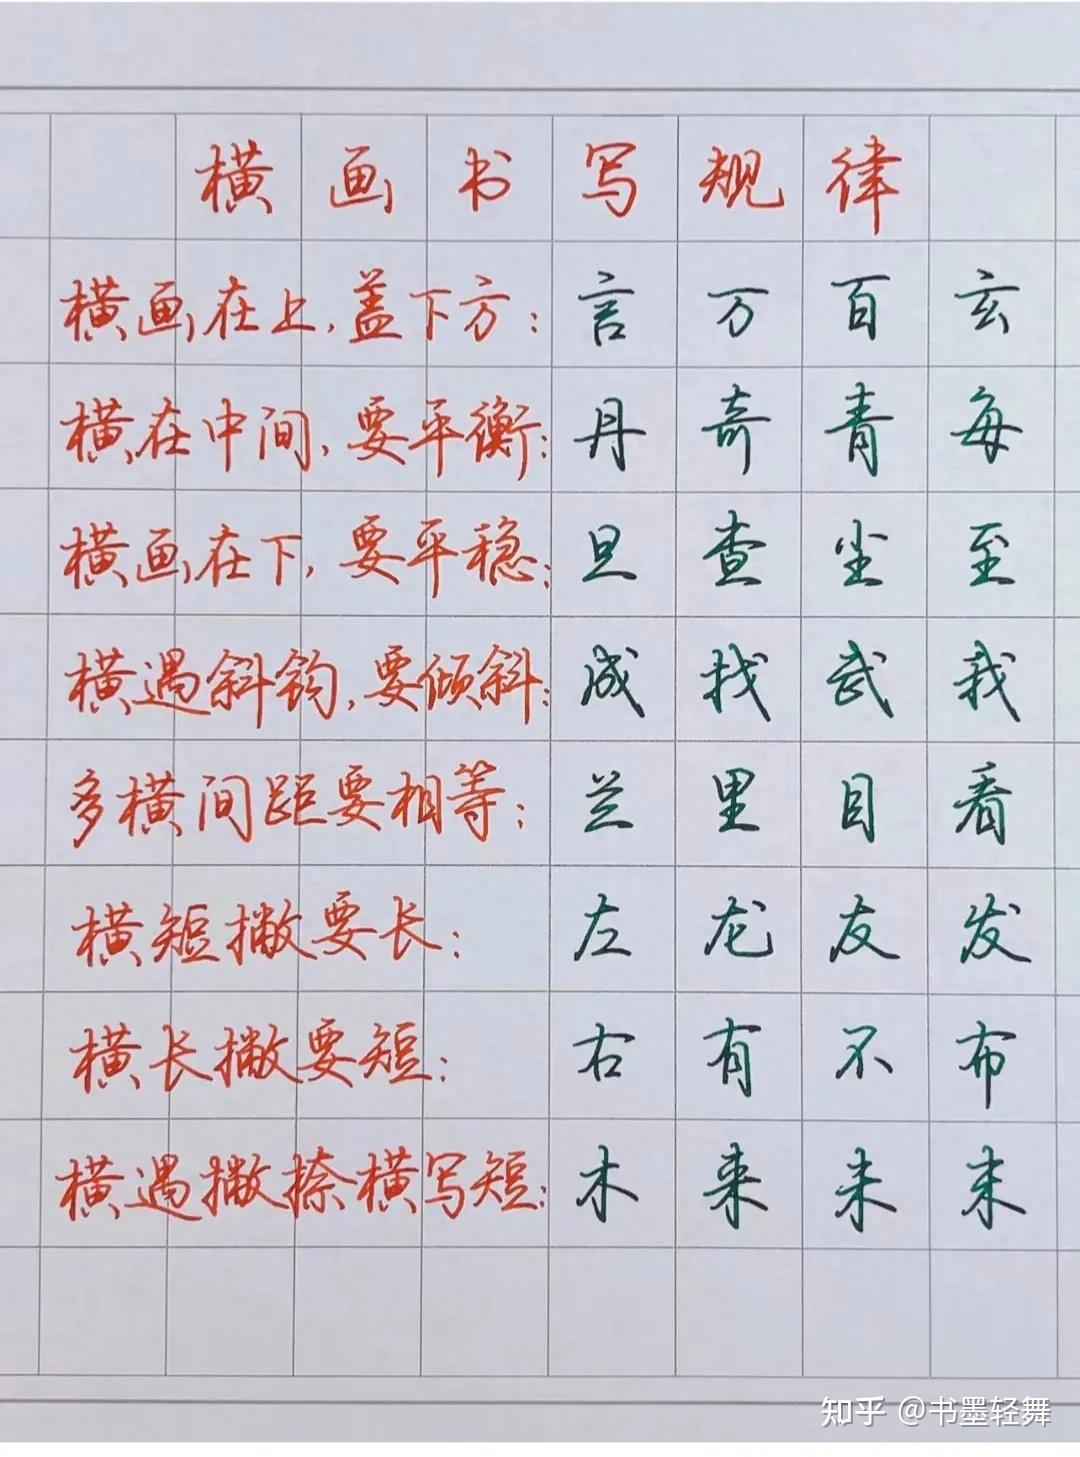 横画书写规律
横画在上,盖下方: 言 万 百 玄
横在中间,要平衡: 丹 奇 青 每
横画在下,要平稳: 旦 查 尘 至
横遇斜钩,要倾斜: 成 找 武 我
多横间距要相等: 兰 里 目 看
横短撇要长: 左 龙 友 发
横长撇要短: 右 有 不 布
横遇撇捺横写短: 木 来 未 末
知乎 @书墨轻舞